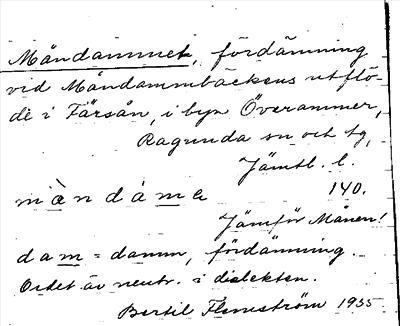 Måndammet, fördämning
vid Måndammbäckens utflö-
de i Färsån, i byn Överammer,
Ragunda sn och tg,
Jämtl. l.
mɑ̀ndáme 140.
Jämför Månen!
dam = damm, fördämning.
Ordet är neutr. i dialekten.
Bertil Flemström 1955